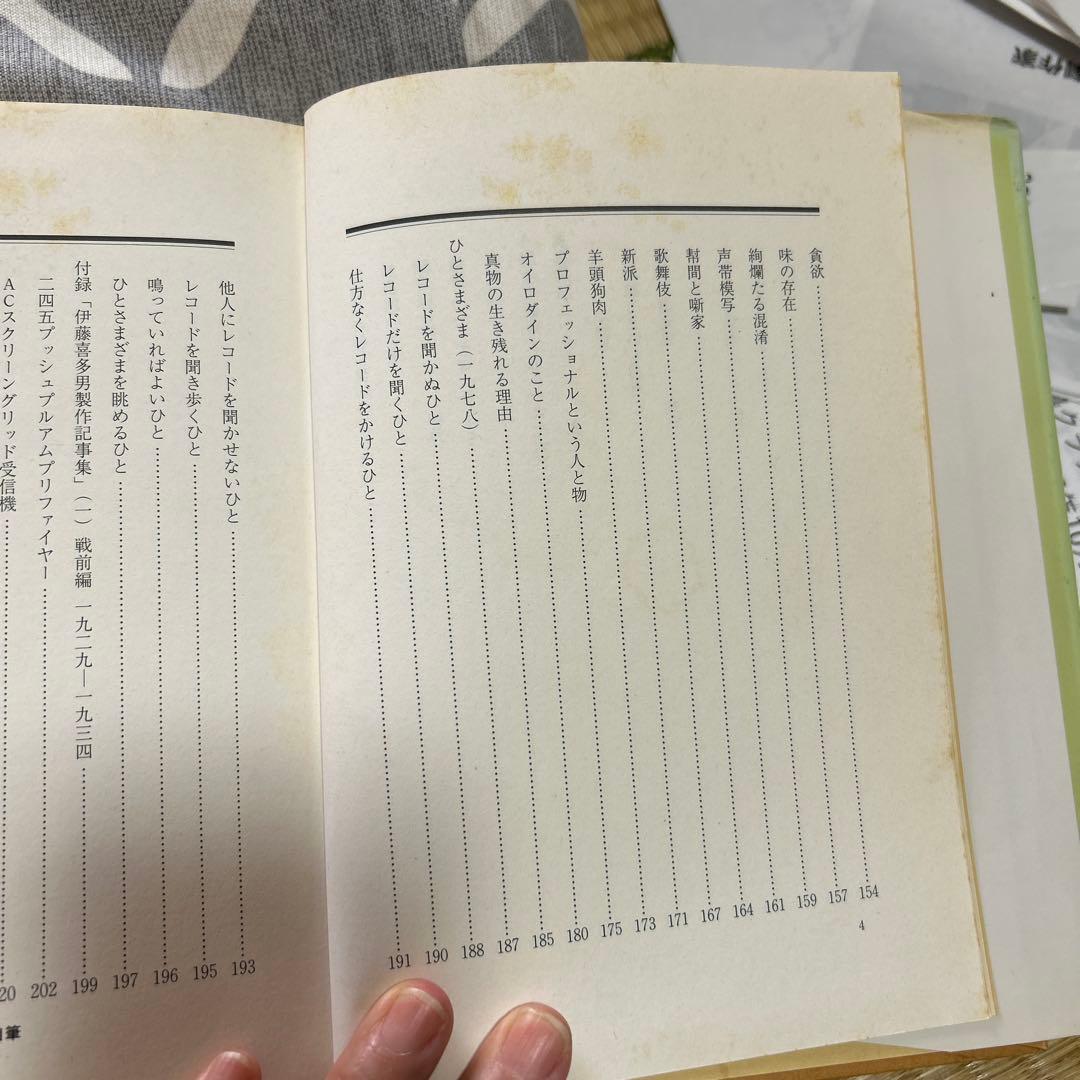 貪欲 154
味の存在 157
絢爛たる混淆 159
声帯模写 161
幇間と噺家 164
歌舞伎 167
新派 171
羊頭狗肉 173
プロフェッショナルという人と物 175
オイロダインのこと 180
真物の生き残れる理由 185
ひとさまざま（一九七八） 187
レコードを聞かぬひと 188
レコードだけを聞くひと 190
仕方なくレコードをかけるひと 191
4
他人にレコードを聞かせないひと 193
レコードを聞き歩くひと 195
鳴っていればよいひと 196
ひとさまざまを眺めるひと 197
付録「伊藤喜多男製作記事集」（一）戦前編 一九二九—一九三四 199
二四五プッシュプルアムプリファイヤー 202
ACスクリーングリッド受信機 20
筆
作家